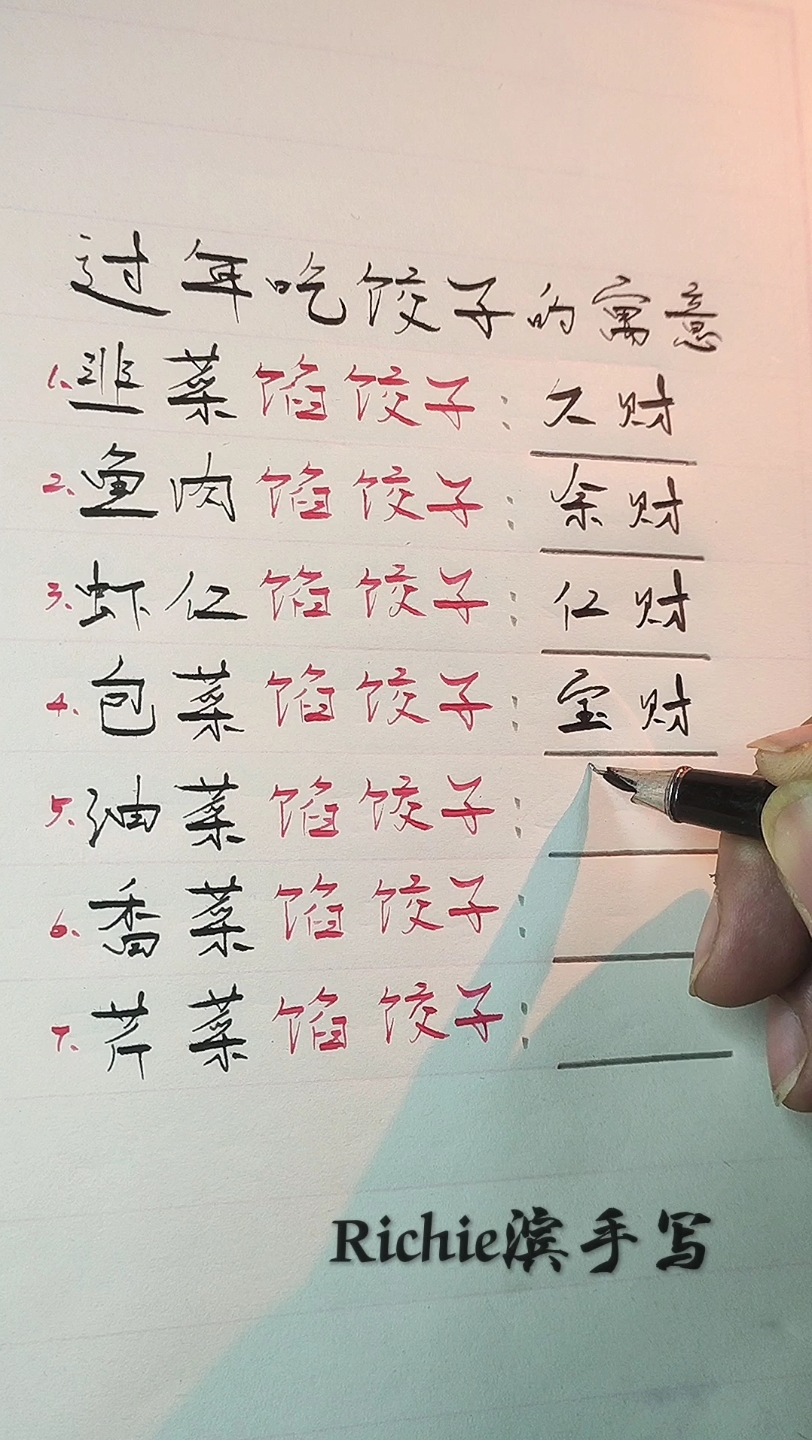 过年吃饺子的寓意
1、韭菜馅饺子：久财
2、鱼肉馅饺子：余财
3、虾仁馅饺子：仁财
4、包菜馅饺子：宝财
5、油菜馅饺子：
6、香菜馅饺子：
7、芹菜馅饺子：
Richie滨手写